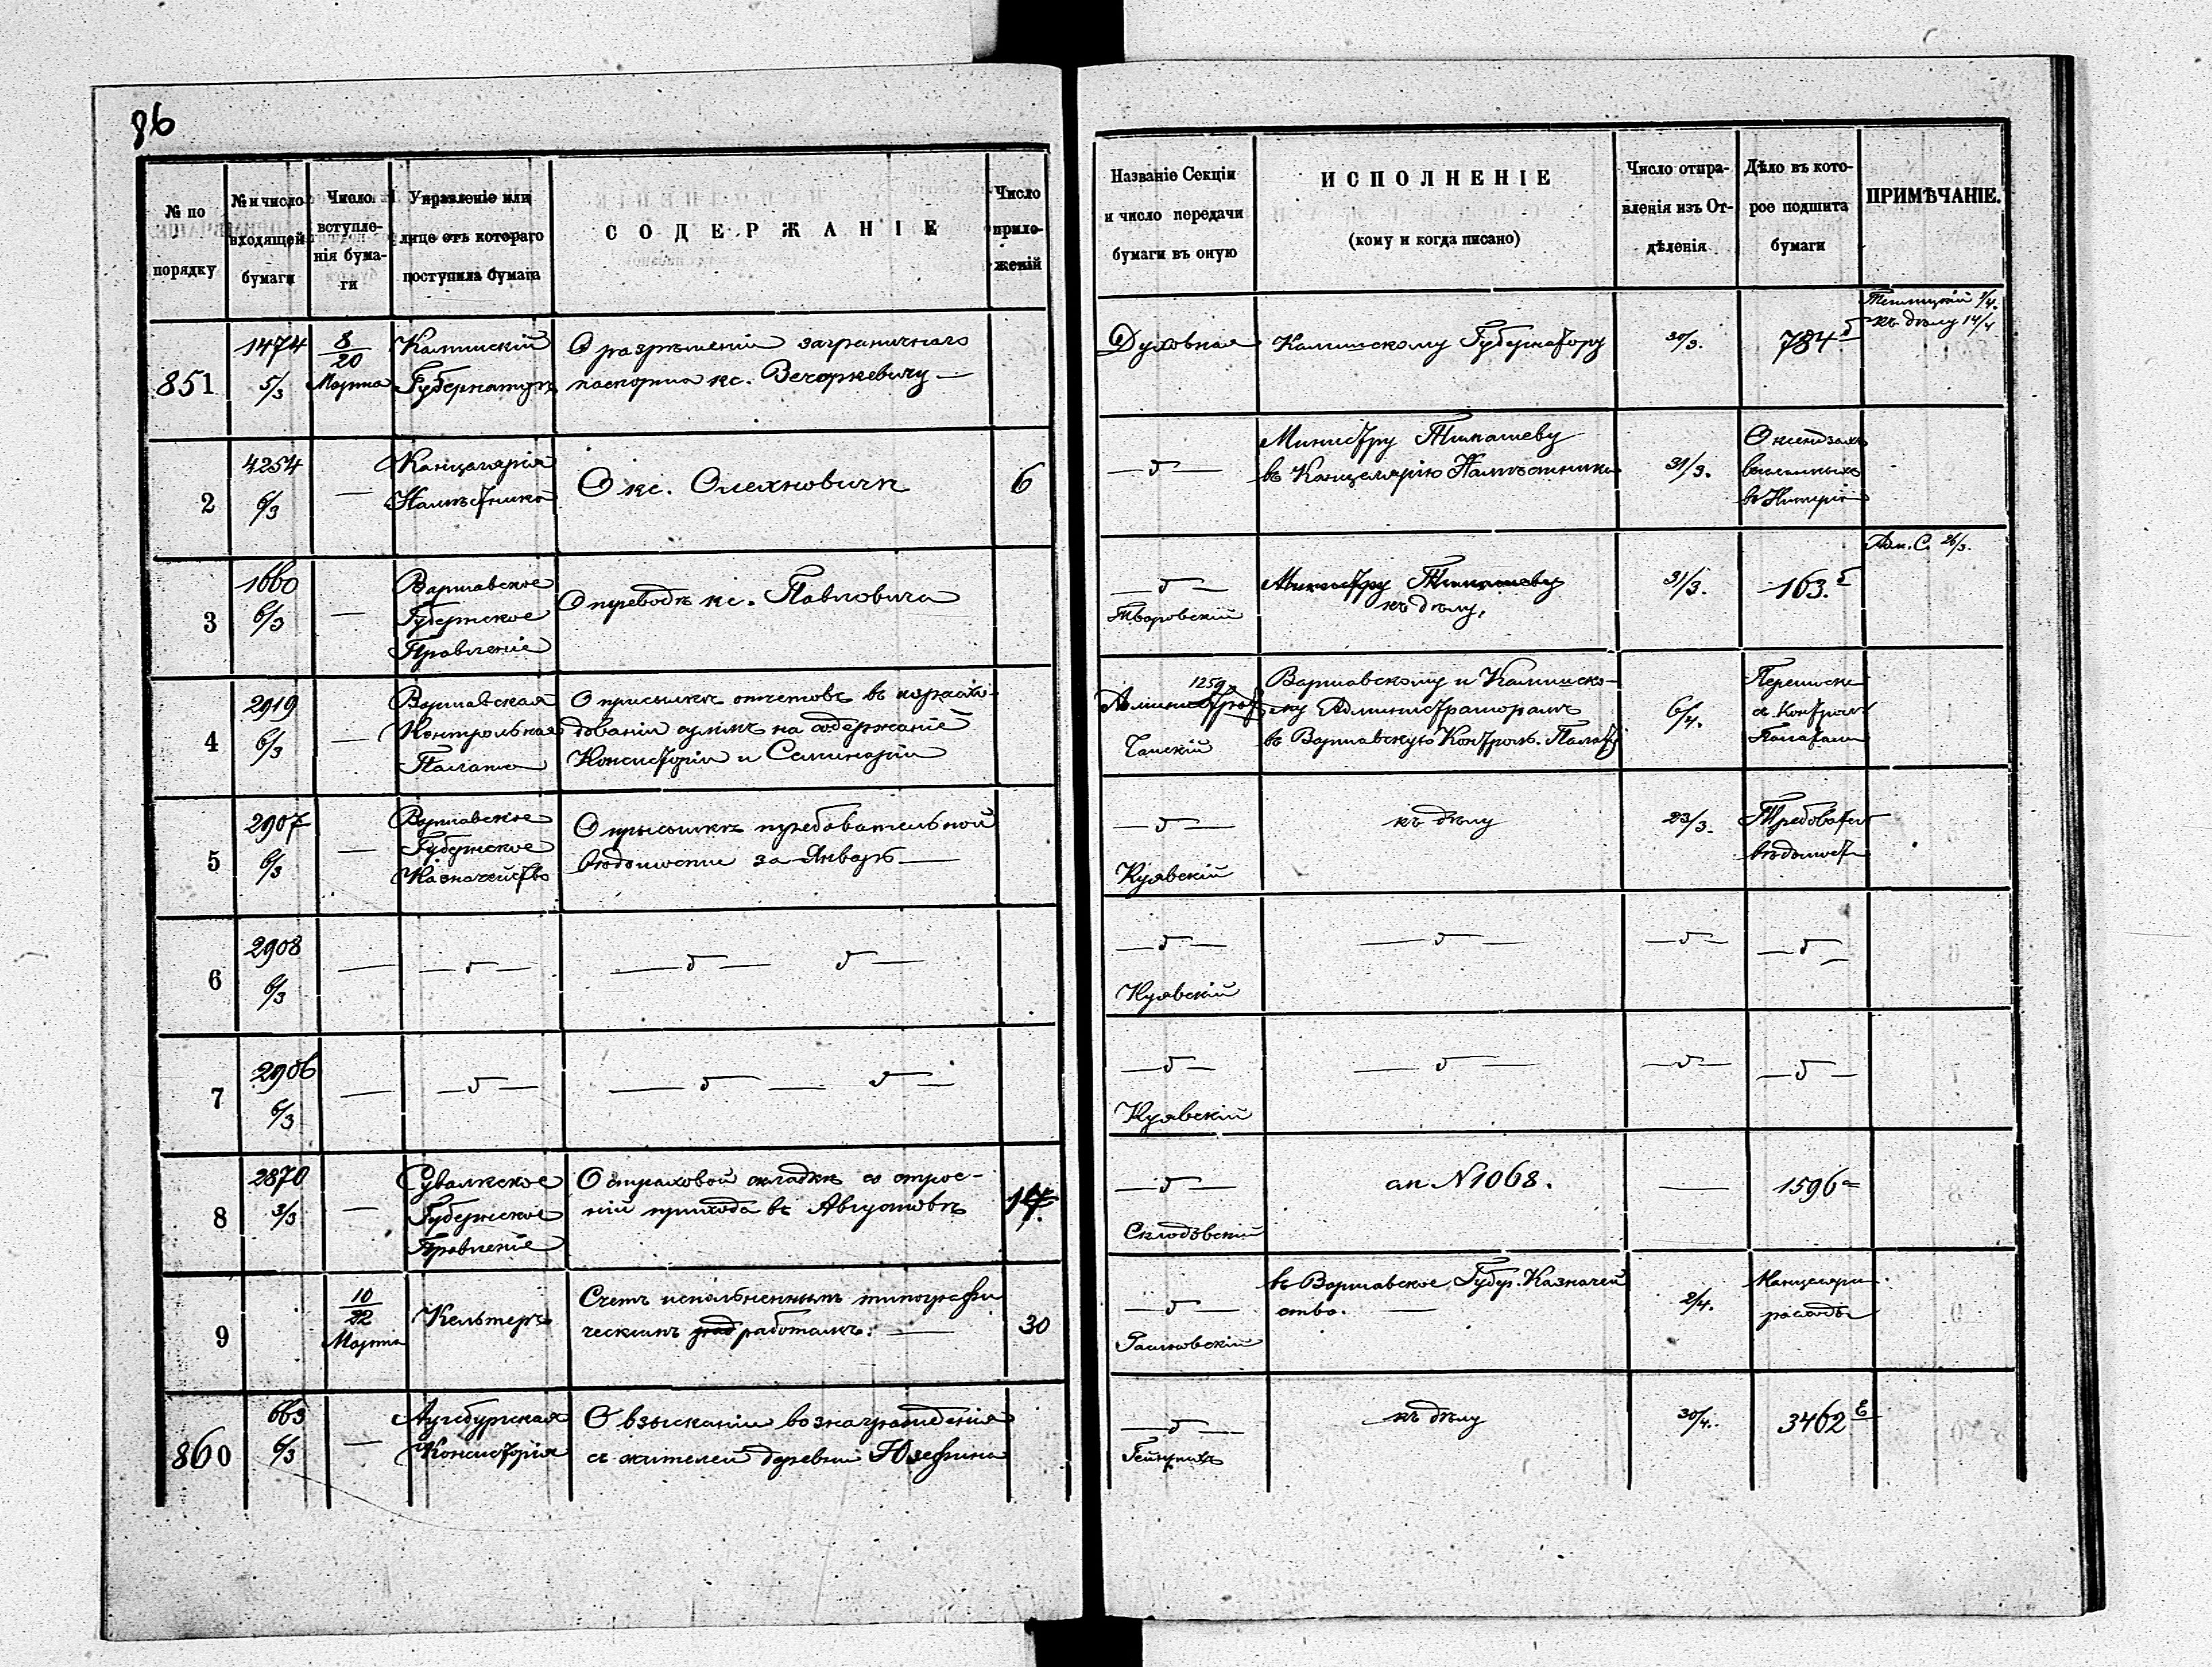 86
№ по порядку
№ и число входящей бумаги
Число вступле-нія бума-ги
Управленіе или лице отъ котораго поступила бумага
СОДЕРЖАНІЕ
Число прило-женій
Названіе Секціи и число передачи бумаги въ оную
ИСПОЛНЕНІЕ
(кому и когда писано)
Число отпра-вленія изъ От-дѣленія
Дѣло въ кото-рое подшита бумаги
ПРИМѢЧАНІЕ.
851
1474
5/3
8/20
Марта
Калишскій
Губернаторъ
О разрѣшеніи заграничнаго
паспорта кс. Вечоркевичу —
Духовная
Калишскому Губернатору
30/3.
784
къ дѣлу 14/4
2
4254
6/3
—
Канцелярія
Намѣстника
О кс. Олехновичѣ
6
— д —
Министру Тимашеву
въ Канцелярію Намѣстника
31/3.
О ксендзахъ
высланныхъ
въ Имперію
3
1660
6/3
—
Варшавское
Губернское
Правленіе
О переводѣ кс. Павловича
— д —
Тваровскій
Министру Тимашеву
къ дѣлу.
31/3.
163.
26/3.
4
2919
6/3
—
Варшавская
Контрольная
Палата
О присылкѣ отчетовъ въ израсхо-
дованіи суммъ на содержаніе
Консисторіи и Семинаріи
1259
Чайскій
Варшавскому и Калишско-
му Администраторамъ
въ Варшавскую Контрол. Палату
6/4.
Переписка
съ Контрол.
Палатами
5
2907
6/3
—
Варшавское
Губернское
Казначейство
О присылкѣ требовательной
вѣдомости за Январь —
— д —
Куявскій
къ дѣлу
23/3.
Требоват.
вѣдомост.
6
2908
6/3
—
— д —
— д — д —
— д —
Куявскій
— д —
— д —
— д —
7
2906
6/3
—
— д —
— д — д —
— д —
Куявскій
— д —
— д —
— д —
8
2870
3/3
—
Сувалкское
Губернское
Правленіе
О страховой складкѣ со строе-
ній прихода въ Августовѣ
17.
— д —
Склодовскій
ап N 1068.
—
1596
9
10/22
Марта
Кельтеръ
Счетъ исполненнымъ типографи
ческимъ работамъ. —
30
— д —
въ Варшавское Губер. Казначей
ство. —
2/4.
Канцеляр.
расходы
860
663
6/3
—
Аугсбургская
Консисторія
О взысканіи вознагражденія
съ жителей деревни Юзефина
— д —
къ дѣлу
30/4.
3462